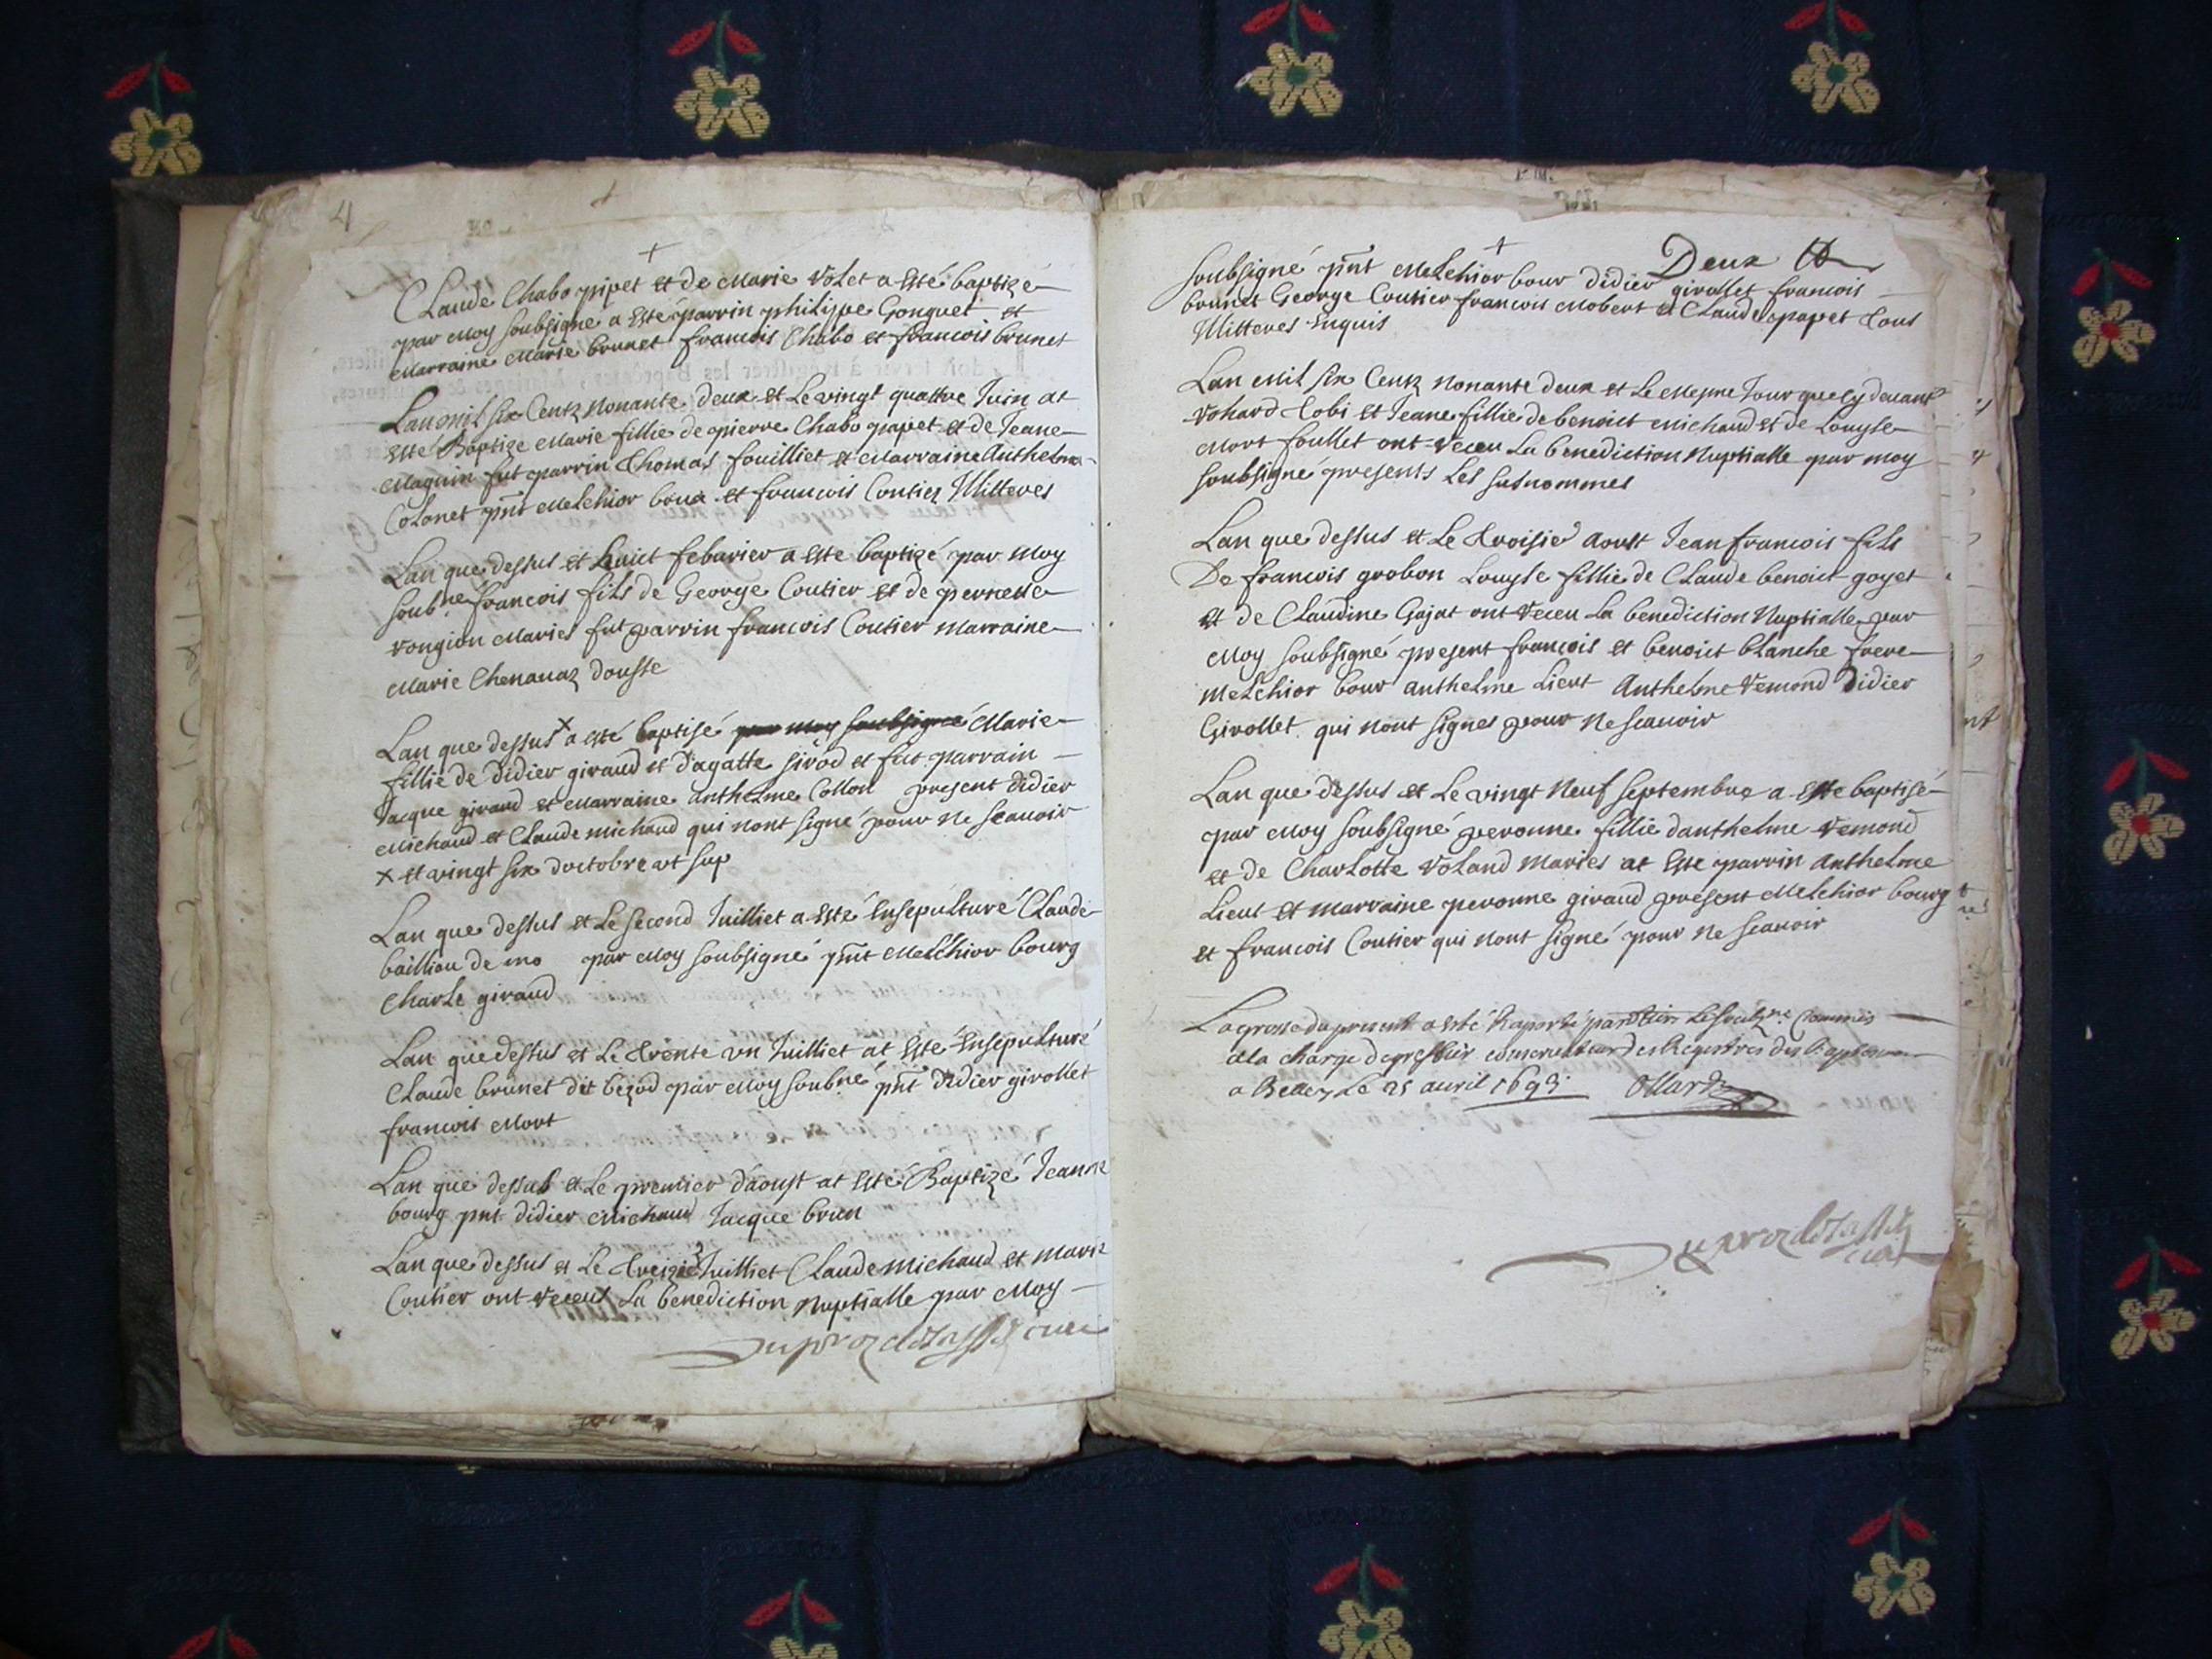 4
Claude Chabo pipet et de Marie Volet a Esté baptizé
par Moy soubsigné a Esté parrin philippe Gonguet et
Marraine Marie brunet francois Chabo et francois brunet
Lan mil six Centz Nonante deux et Le vingt quattre Juin at
Esté Baptize Marie fillie de pierre Chabo papet et de Jeane
Maguin fut parrin Thomas fouilliet et Marraine Anthelma
Colonet pnt Melchior bour et francois Coutier Illitteres
Lan que dessus et huict febvrier a Este baptizé par Moy
soubne francois fils de George Coutier et de pernette
vongion Maries fut parrin francois Coutier Marraine
Marie Chenavaz dousse
Lan que dessus x a esté baptisé par moy soubsigné Marie
fillie de didier giraud et d'agatte sirod et fut parrain
Jacque giraud et Marraine anthelme Collon present didier
Michaud et Claude michaud qui nont signé pour Ne scauoir
x et vingt six doctobre ut sup
Lan que dessus et Le second Juilliet a Esté Ensepulturé Claude
baillion de mo par Moy soubsigné pnt Melchior bourg
Charle giraud
Lan que dessus et Le trente un Juilliet at Esté Ensepulturé
Claude brunet dit bezod par Moy soubné pnt didier girollet
francois Mort
Lan que dessus et Le premier d'aoust at Esté Baptizé Jeanne
bourg pnt didier Michaud Jacque brun
Lan que dessus et Le treizie Juilliet Claude michaud et Marie
Coutier ont receus La benediction Nuptialle par Moy
curé
Deux
soubsigné pnt Melchior bour didier girollet francois
brunet George Coutier francois Mobert et Claude papet tous
Illitteres Enquis
Lan Mil six Centz Nonante deux et Le Mesme Jour que cy devant
vohard tobi et Jeane fillie de benoict Michaud et de Louyse
Mort foullet ont receu La benediction Nuptialle par moy
soubsigné presents Les susnommes
Lan que dessus et Le troisie Aoust Jean francois fils
De francois grobon Louyse fillie de Claude benoict goyet
et de Claudine Gojat ont receu La benediction Nuptialle par
Moy soubsigné present francois et benoict blanche frere
Melchior bour anthelme Lieut Anthelme remond didier
Girollet qui Nont signes pour Ne scauoir
Lan que dessus et Le vingt Neuf septembre a Este baptisé
par Moy soubsigné peronne fillie danthelme remond
et de Charlotte voland Maries at Este parrin Anthelme
Lieut et marraine peronne giraud present Melchior bourg
et francois Coutier qui Nont signé pour Ne scauoir
La grosse du present a esté Raporté par Le soubne Commis
a la charge de greffier conservateur des Registres des baptesmes
a Belley Le 25 auril 1693